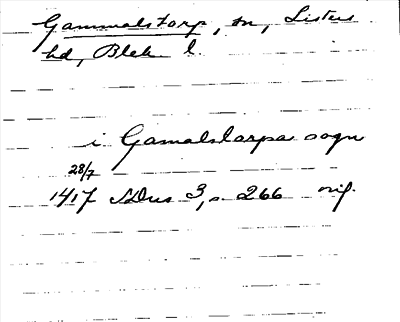 Gammalstorp, sn, Listers
hd, Blek l.
i Gamalstorpa sogn
28/7
1417 SDns 3, s. 266 orig.